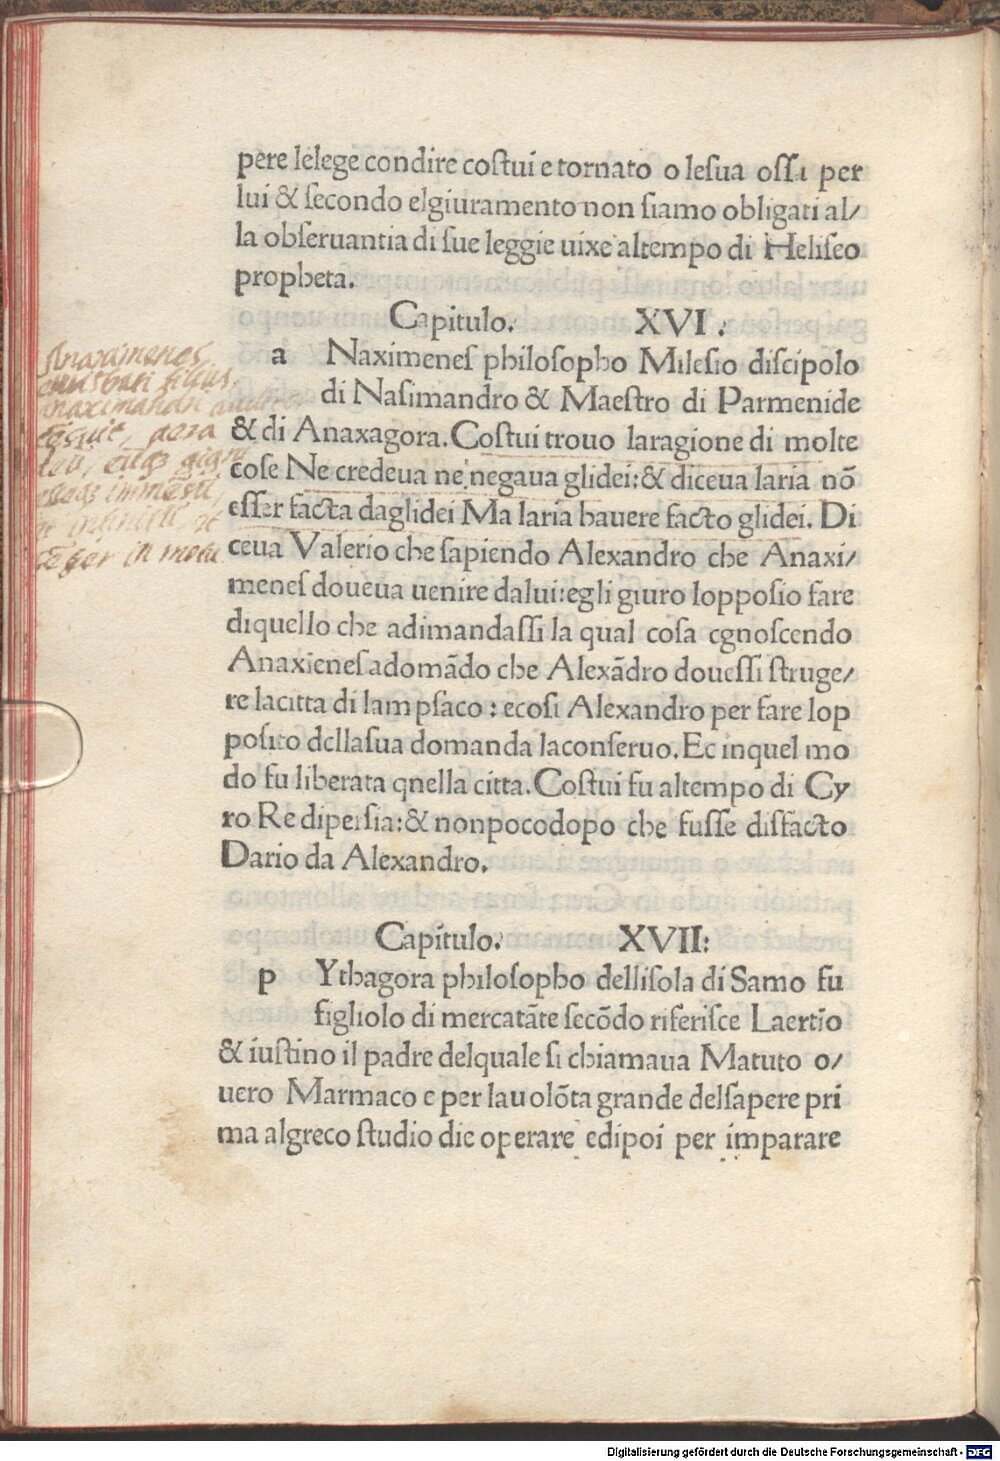 pere lelege condire coſtui e tornato o leſua oſſa per
lui & ſecondo elgiuramento non ſiamo obligati al/
la obſeruantia di ſue leggie uixe altempo di Heliſeo
propheta.
Capitulo. XVI.
a Naximeneſ philoſopho Mileſio diſcipolo
di Naſimandro & Maeſtro di Parmenide
& di Anaxagora. Coſtui trouo laragione di molte
coſe Ne credeua ne negaua glidei: & diceua laria nō
eſſer facta daglidei Ma laria hauere facto glidei. Di
ceua Valerio che ſapiendo Alexandro che Anaxi/
meneſ doueua uenire dalui: egli giuro loppoſio fare
diquello che adimandaſſi la qual coſa cgnoſcendo
Anaxieneſ adomādo che Alexādro doueſſi ſtruge/
re lacitta di lam pſaco : ecoſi Alexandro per fare lop
poſito dellaſua domanda laconſeruo. Ec inquel mo
do fu liberata qnella citta. Coſtui fu altempo di Cy
ro Re diperſia: & nonpocodopo che fuſſe diſfacto
Dario da Alexandro.
Capitulo. XVII:
p Ythagora philoſopho delliſola di Samo fu
figliolo di mercatāte ſecōdo riferiſce Laertio
& iuſtino il padre delquale ſi chiamaua Matuto o/
uero Marmaco e per lauolōta grande delſapere pri
ma algreco ſtudio die operare edipoi per imparare
Anaximenes
filius
anaximandri
aera
in
Digitalisierung gefördert durch die Deutsche Forschungsgemeinschaft - DFG